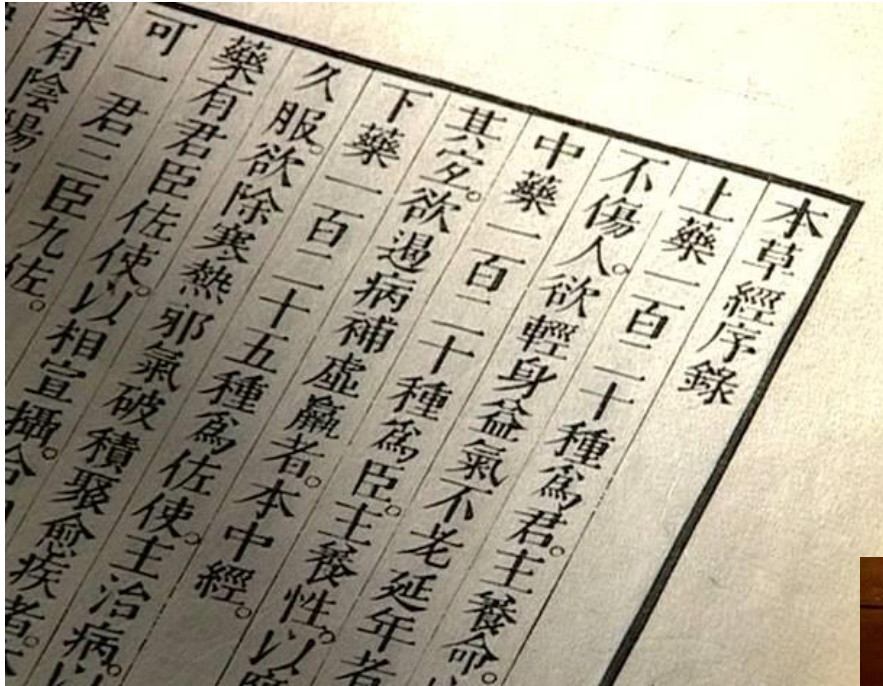 本草經序錄
上藥一百二十種爲君。主養命。
不傷人。欲輕身益氣不老延年者
中藥一百二十種爲臣。主養性。以
其宐。欲遏病補虛羸者。本中經。
下藥一百二十五種爲佐使。主治病。以
久服。欲除寒熱邪氣破積聚愈疾者。
藥有君臣佐使。以相宣攝。合
可一君三臣九佐。
藥有陰陽